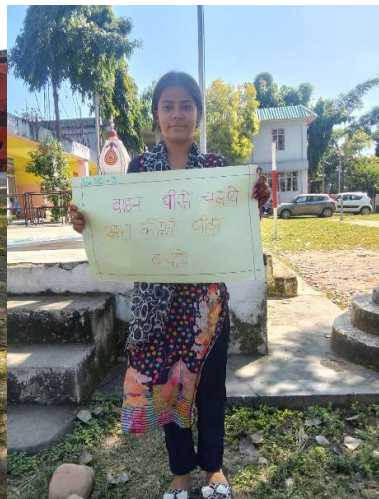 वाहन धीमे चलाये
अपना कीमती जीवन
बचाये